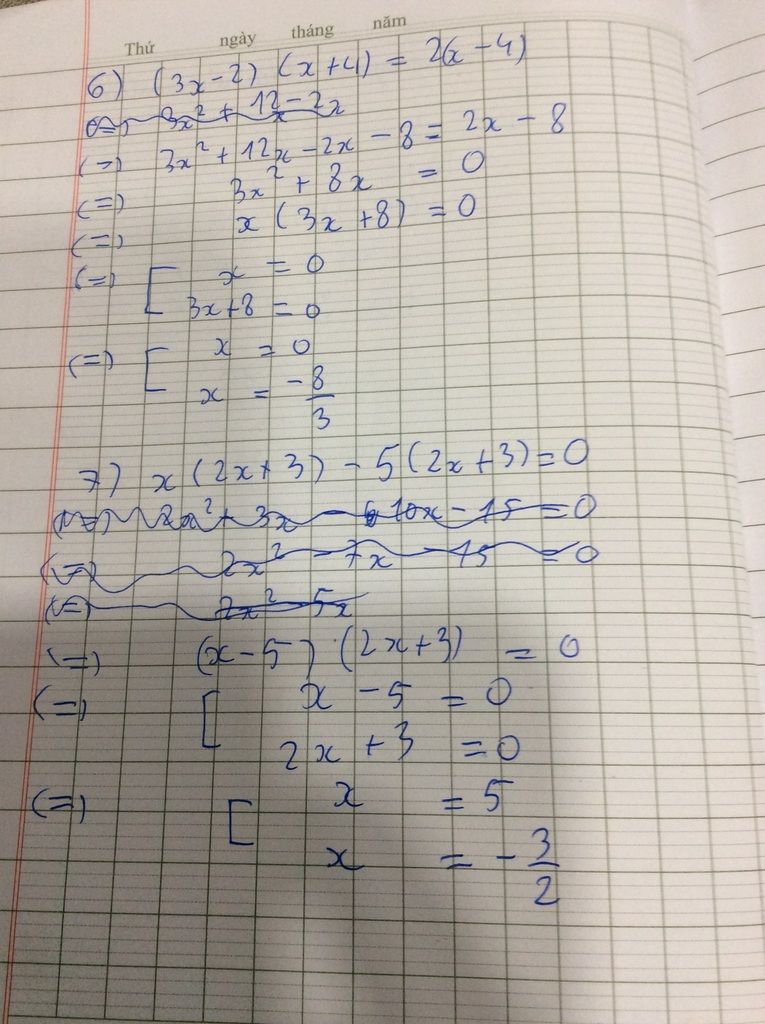 Thứ ngày tháng năm
6) (3x-2) (x+4) = 2(x-4)
(=) 3x² + 12x - 2x
(=) 3x² + 12x - 2x - 8 = 2x - 8
(=) 3x² + 8x = 0
(=) x (3x+8) = 0
(=) [ x = 0
3x+8 = 0
(=) [ x = 0
x = -8/3
7) x (2x+3) - 5(2x+3) = 0
(=) 2x² + 3x - 10x - 15 = 0
(=) 2x² - 7x - 15 = 0
(=) 2x² - 5x
(=) (x-5) (2x+3) = 0
(=) [ x - 5 = 0
2x + 3 = 0
(=) [ x = 5
x = - 3/2